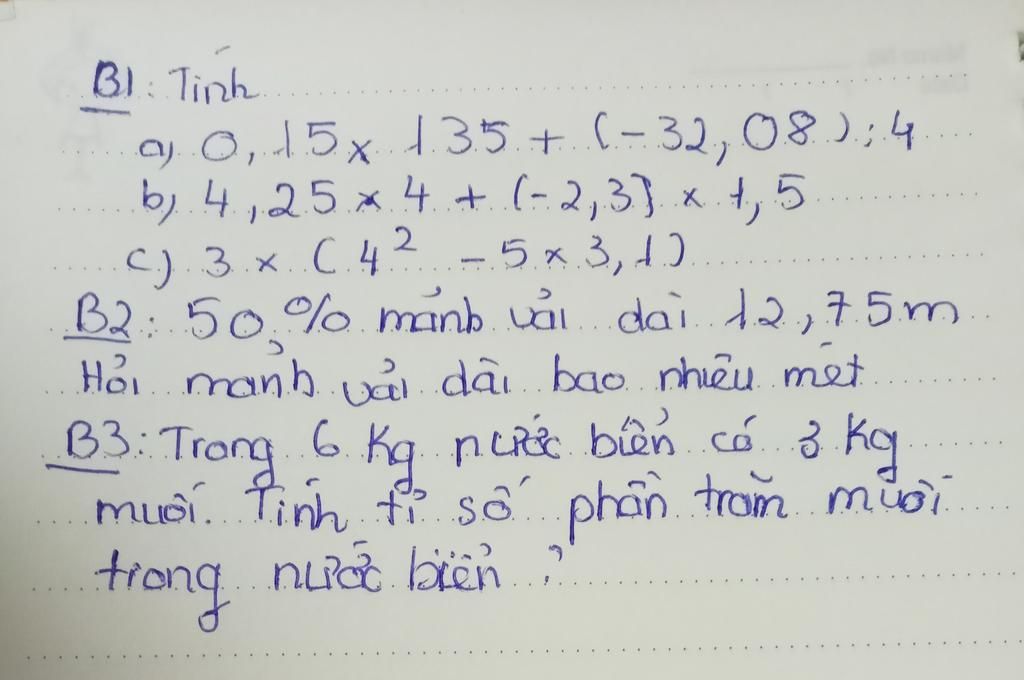 B1: Tính
a) 0,15 x 135 + (-32,08) : 4
b) 4,25 x 4 + (-2,3) x 1,5
c) 3 x ( 4² - 5 x 3,1)
B2: 50% mảnh vải dài 12,75m
Hỏi mảnh vải dài bao nhiêu mét
B3: Trong 6 kg nước biển có 3 kg
muối. Tính tỉ số phần trăm muối
trong nước biển ?